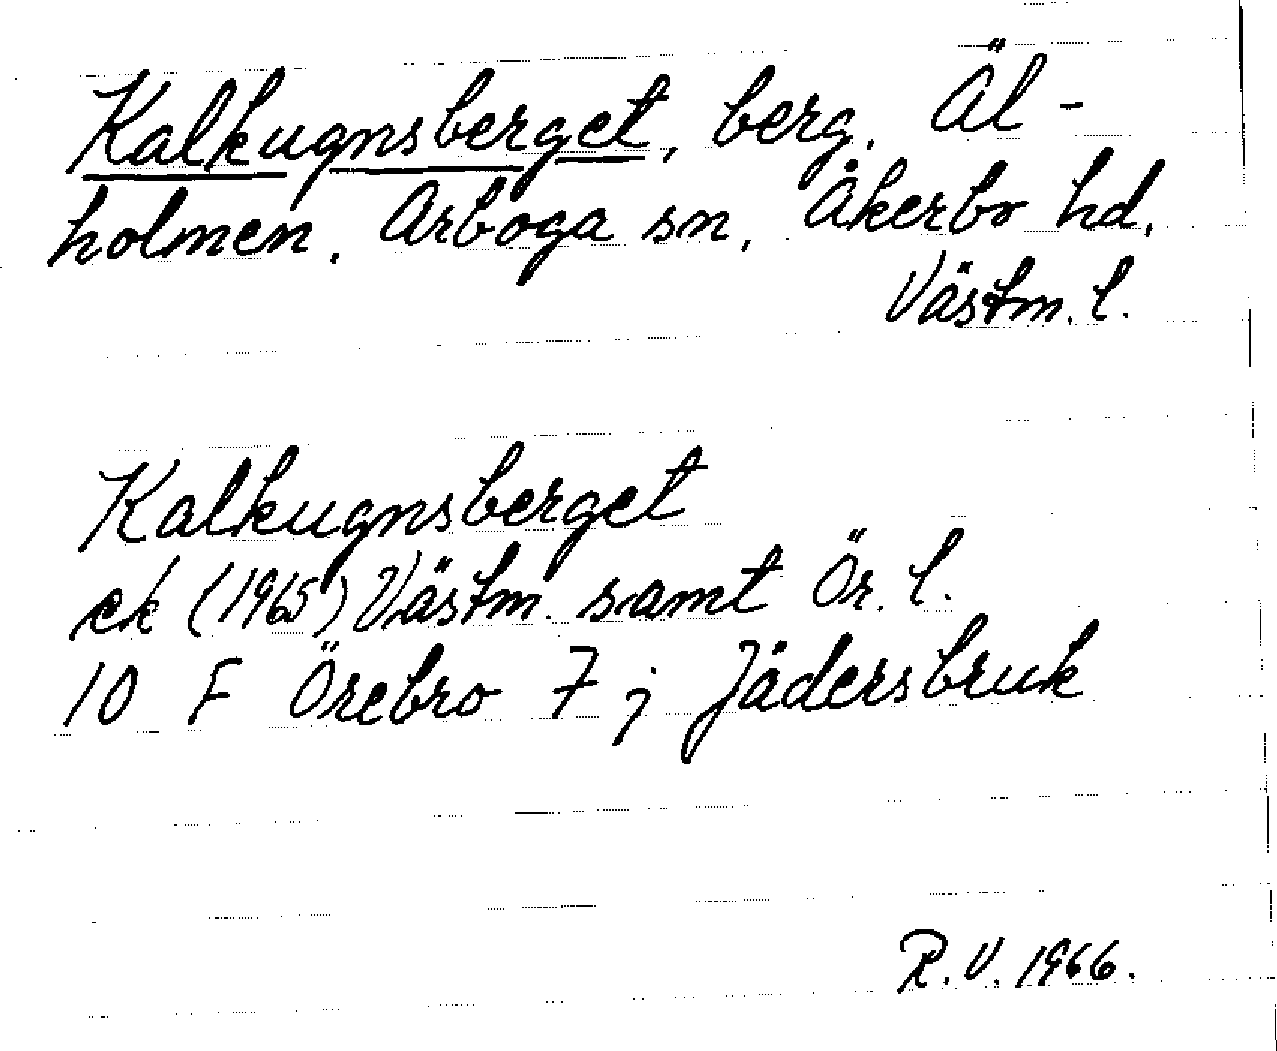 Kalkugnsberget, berg. Äl-
holmen. Arboga sn, Åkerbo hd.
Västm. l.
Kalkugnsberget
ek (1965) Västm. samt Ör. l.
10 F Örebro 7 j Jädersbruk
R.V. 1966.